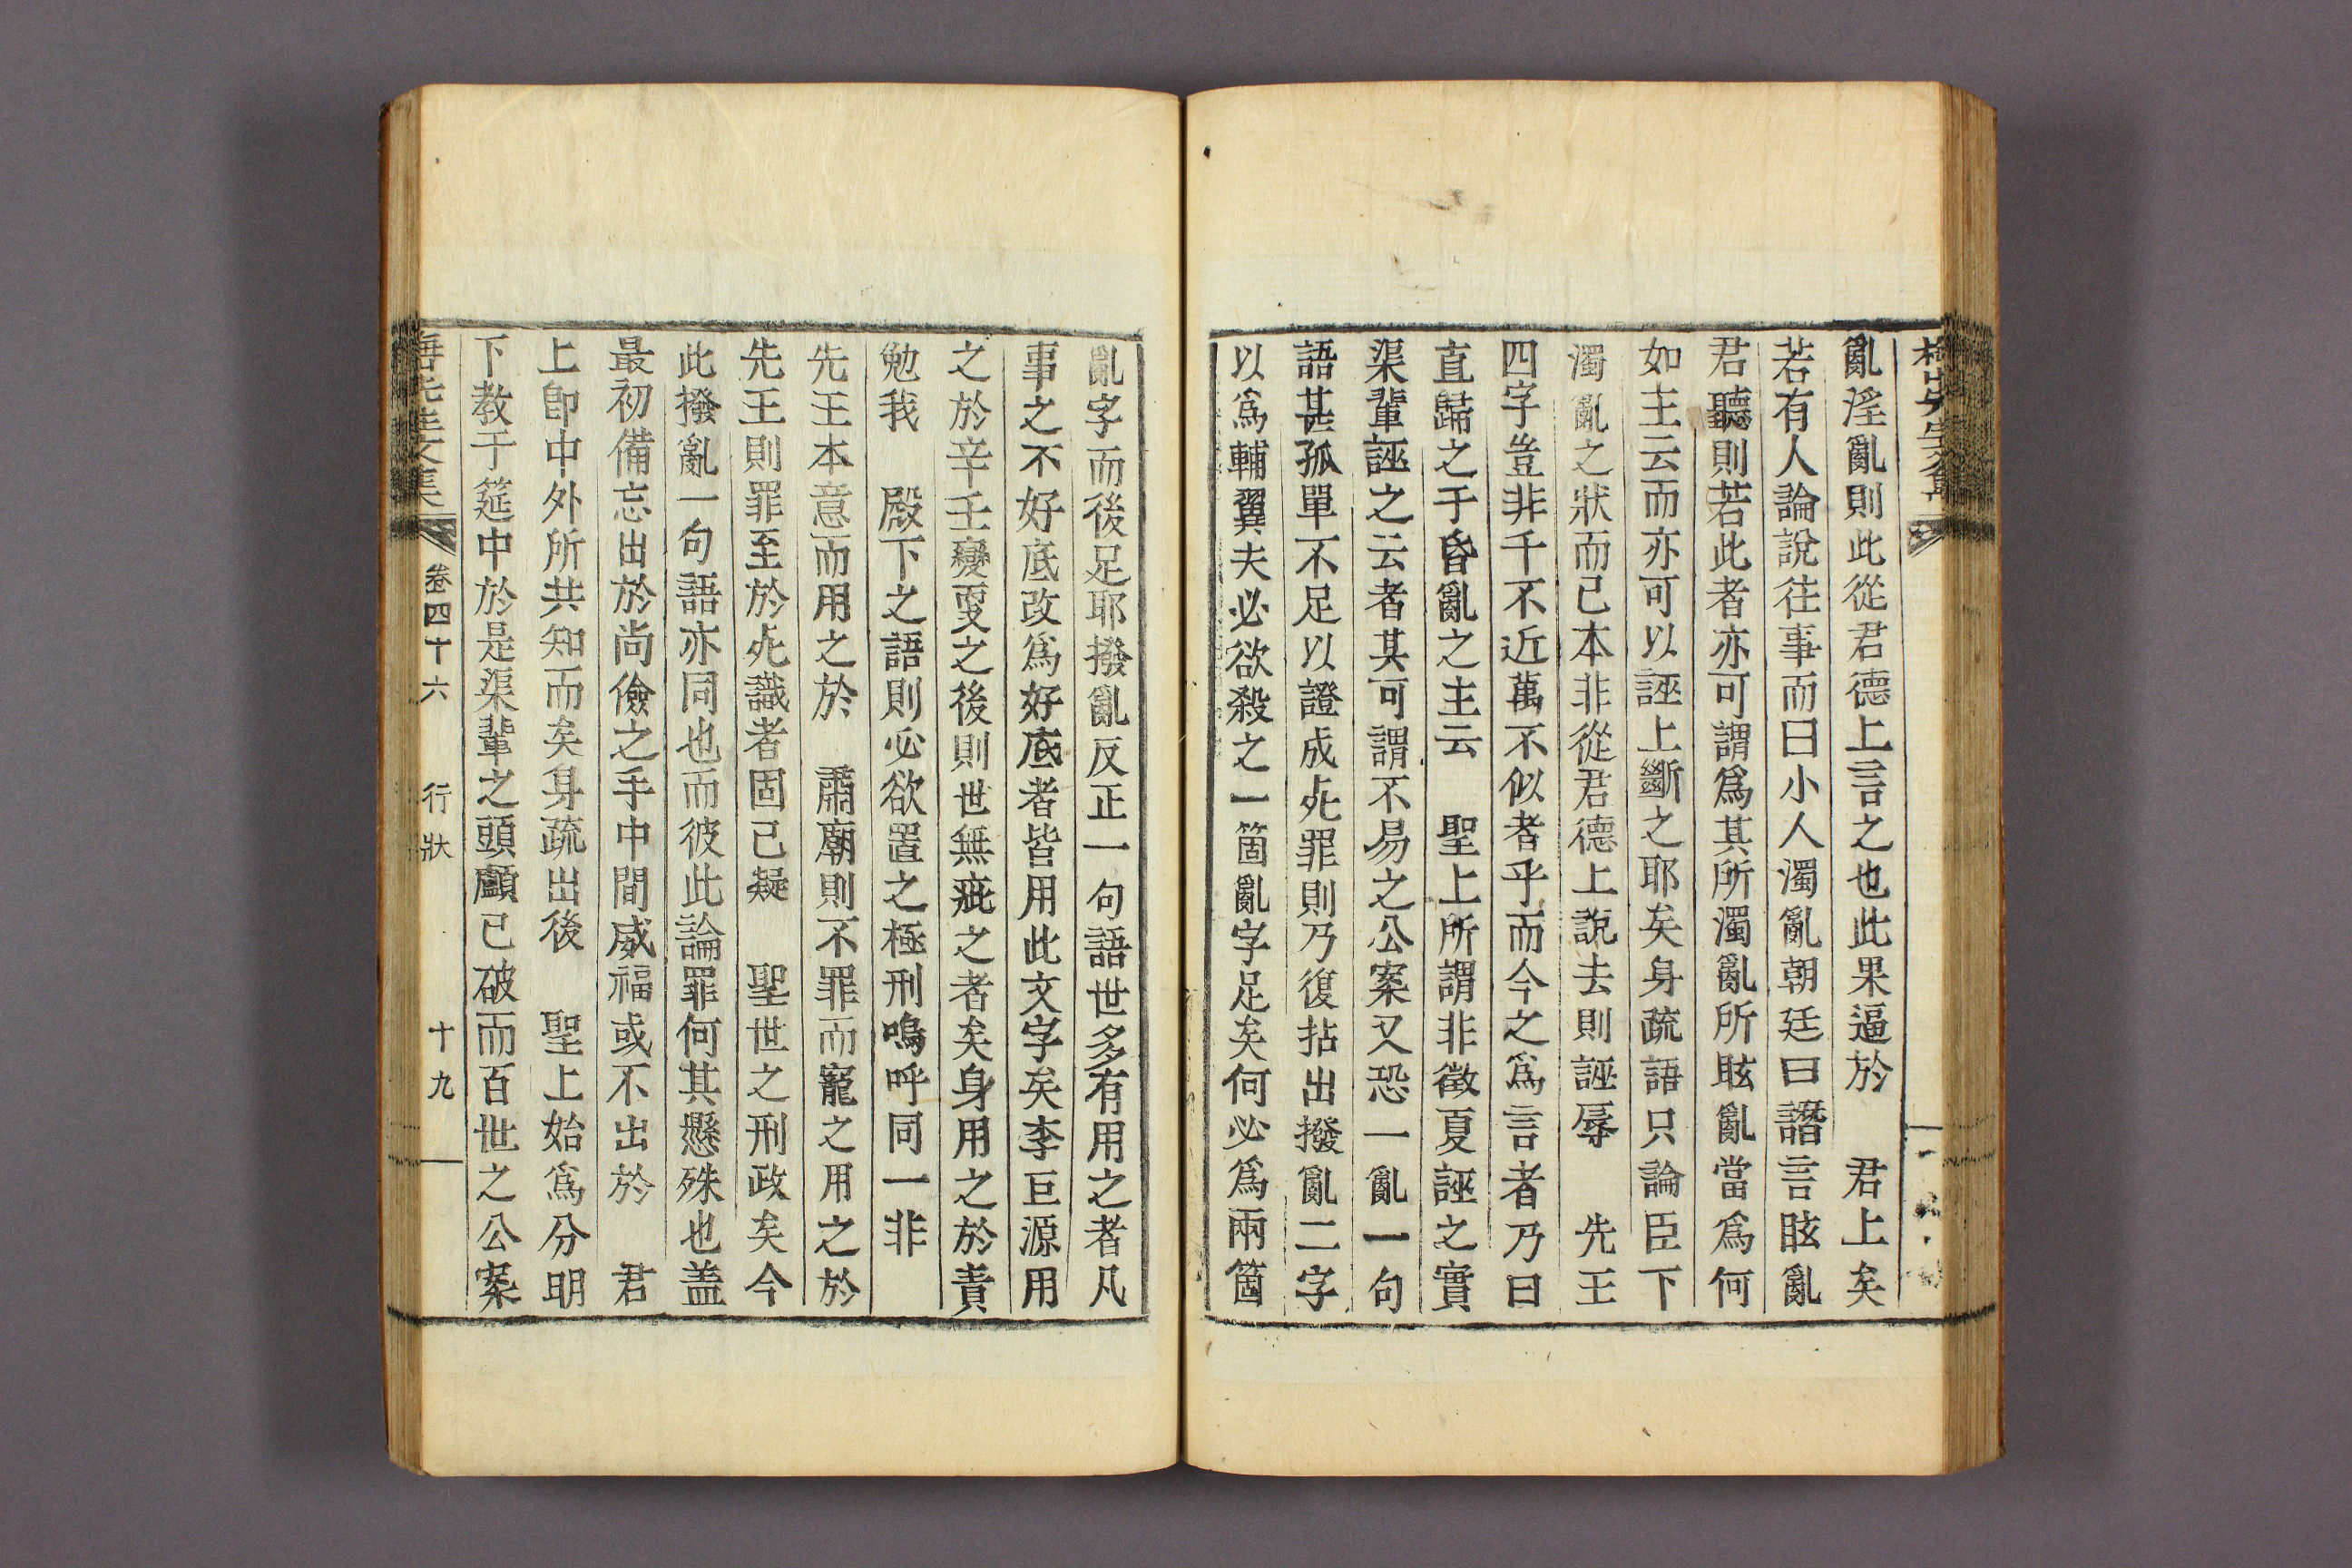 亂淫亂則此從君德上言之也此果逼於　君上矣
若有人論說往事而曰小人濁亂朝廷曰譖言眩亂
君聽則若此者亦可謂爲其所濁亂所眩亂當爲何
如主云而亦可以誣上斷之耶矣身疏語只論臣下
濁亂之狀而已本非從君德上說去則誣辱　先王
四字豈非千不近萬不似者乎而今之爲言者乃曰
直歸之于昏亂之主云　聖上所謂非徵夏誣之實
渠輩誣之云者其可謂不易之公案又恐一亂一句
語甚孤單不足以證成死罪則乃復拈出撥亂二字
以爲輔翼夫必欲殺之一箇亂字足矣何必爲兩箇
亂字而後足耶撥亂反正一句語世多有用之者凡
事之不好底改爲好底者皆用此文字矣李巨源用
之於辛壬變更之後則世無疵之者矣身用之於責
勉我　殿下之語則必欲置之極刑嗚呼同一非
先王本意而用之於　肅廟則不罪而寵之用之於
先王則罪至於死識者固已疑　聖世之刑政矣今
此撥亂一句語亦同也而彼此論罪何其懸殊也盖
最初備忘出於尙儉之手中間威福或不出於　君
上卽中外所共知而矣身疏出後　聖上始爲分明
下教于筵中於是渠輩之頭顱已破而百世之公案
先生文集　卷四十六　行狀　十九